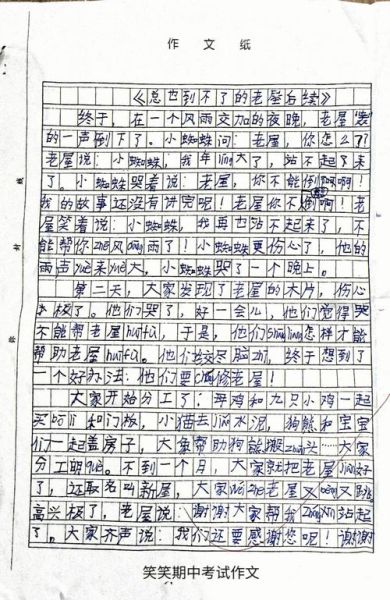 作 文 纸
《总也到不了的老屋后续》
终于，在一个风雨交加的夜晚，老屋"轰"
的一声倒下了。小蜘蛛问：老屋，你怎么了？
老屋说：小蜘蛛，我年líng大了，站不起了来
了。小蜘蛛哭着说：老屋，你不能倒啊啊！
我的故事还没有讲完呢！老屋你不倒啊！老
屋笑着说：小蜘蛛，我再也站不起来了，不
能帮你zhē风dǎng雨了！小蜘蛛更伤心了，他的
雨声yuè来yuè大，小蜘蛛哭了一个晚上。
第二天，大家发现了老屋的木片，伤心
极了。他们哭了，好一会儿，他们觉得哭
不能帮老屋huīfù，于是，他们xiǎng怎样才能
帮助老屋huīfù。他们绞尽脑zhī，终于想到了
一个好办法：他们要chóng修老屋！
大家开始分工了：母鸡和九只小鸡一起
买 和门板，小猫去 水泥，狗熊和宝宝
们一起盖房子，大象帮助狗熊搬 头……大家
分工明què。不到一个月，大家就把老屋 好
了，还取名叫新屋，大家 老屋又 又跳
高兴极了，老屋说：谢谢大家帮我 站起
了。大家齐声说：我们还要感谢您呢！谢谢
笑笑期中考试作文